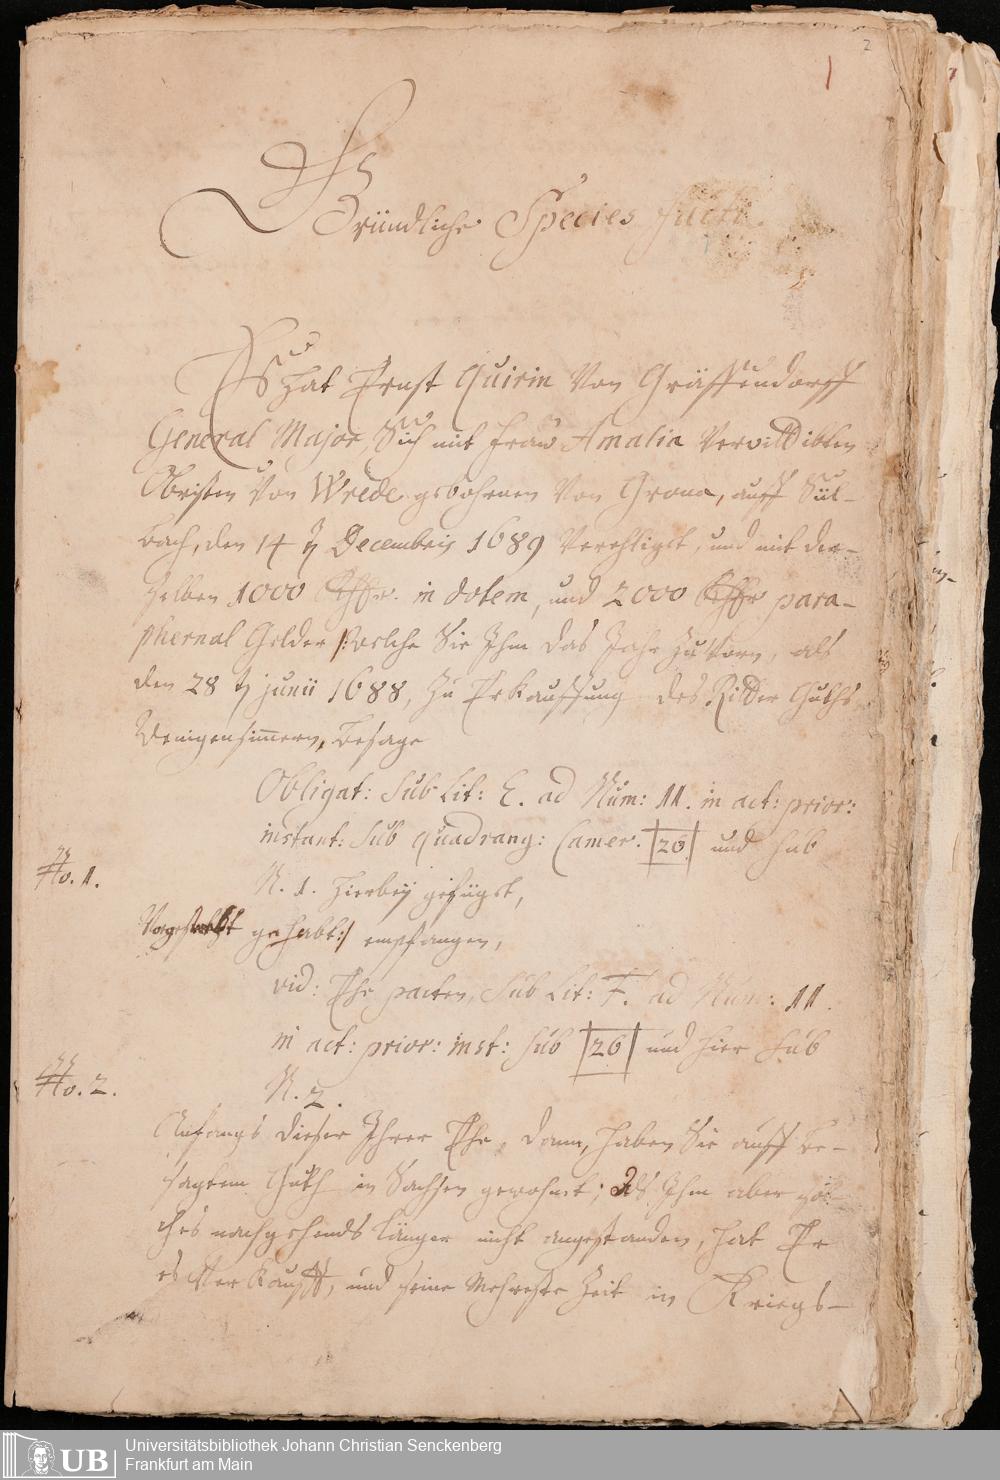 2
Gründliche Species facti
Es hat Ernst Quirin Von Gräffendorff
General Major, Sich mit Fraw Amalia Verwittibten
Obristen Von Wrede gebohrnen Von Grona, auff Sül-
bach, den 14 Decembris 1689 Verehligt, und mit der-
selben 1000 in dotem, und 2000 para-
phernal Gelder /:welche Sie Ihm das Jahr zuvorn, als
den 28 junii 1688, zu Erkauffung des Ritter Guths
Wenigensömmern, besage
Obligat: sub Lit: E. ad Num: 11. in act: prior:
instant: sub quadrang: Camer. 26 und sub
No. 1.
N. 1. hierbey gefügt,
Vorgestreckt gehabt:/ empfangen,
vid: Ehe pacten, sub Lit: F. ad Num: 11.
in act: prior: inst: sub 26 und hier sub
No. 2.
N. 2.
Anfangs dieser Ihrer Ehe, dann, haben Sie auff be-
sagtem Guth in Sachsen gewohnt; Als Ihm aber sol-
ches nachgehends länger nicht angestanden, hat Er
es Verkaufft, und seine mehreste Zeit in Kriegs-
UB
Universitätsbibliothek Johann Christian Senckenberg
Frankfurt am Main